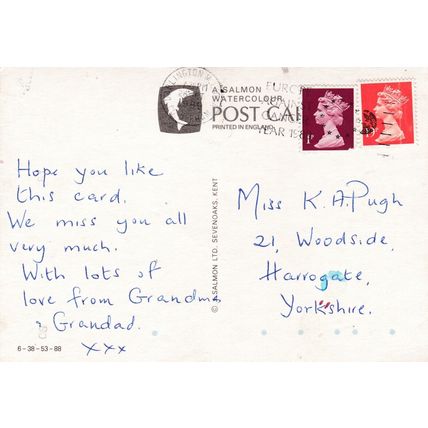 A SALMON
WATERCOLOUR
POST CA
PRINTED IN ENGLAND
1P
Hope you like
this card.
We miss you all
very much.
With lots of
love from Grandma
& Grandad.
xxx
6-38-53-88
© A SALMON LTD. SEVENOAKS, KENT
Miss K. A. Pugh
21, Woodside,
Harrogate,
Yorkshire.